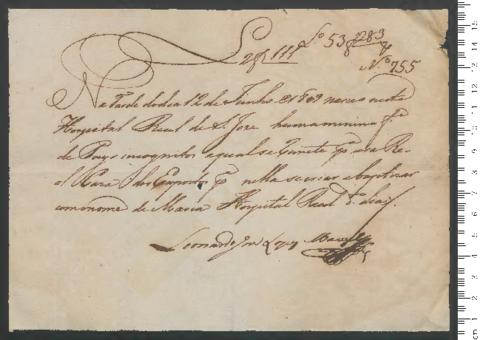 Lº 53 f 283
2 f 111
Nº 755
Na tarde do dia 12 de Junho de 1809 nasceo neste
Hospital Real de S. José huma minina fª
de Pays incognitos a qual se remete pª a Re
al Caza dos Expostos pª nella se criar e baptizar
com o nome de Maria Hospital Real
Leonardo